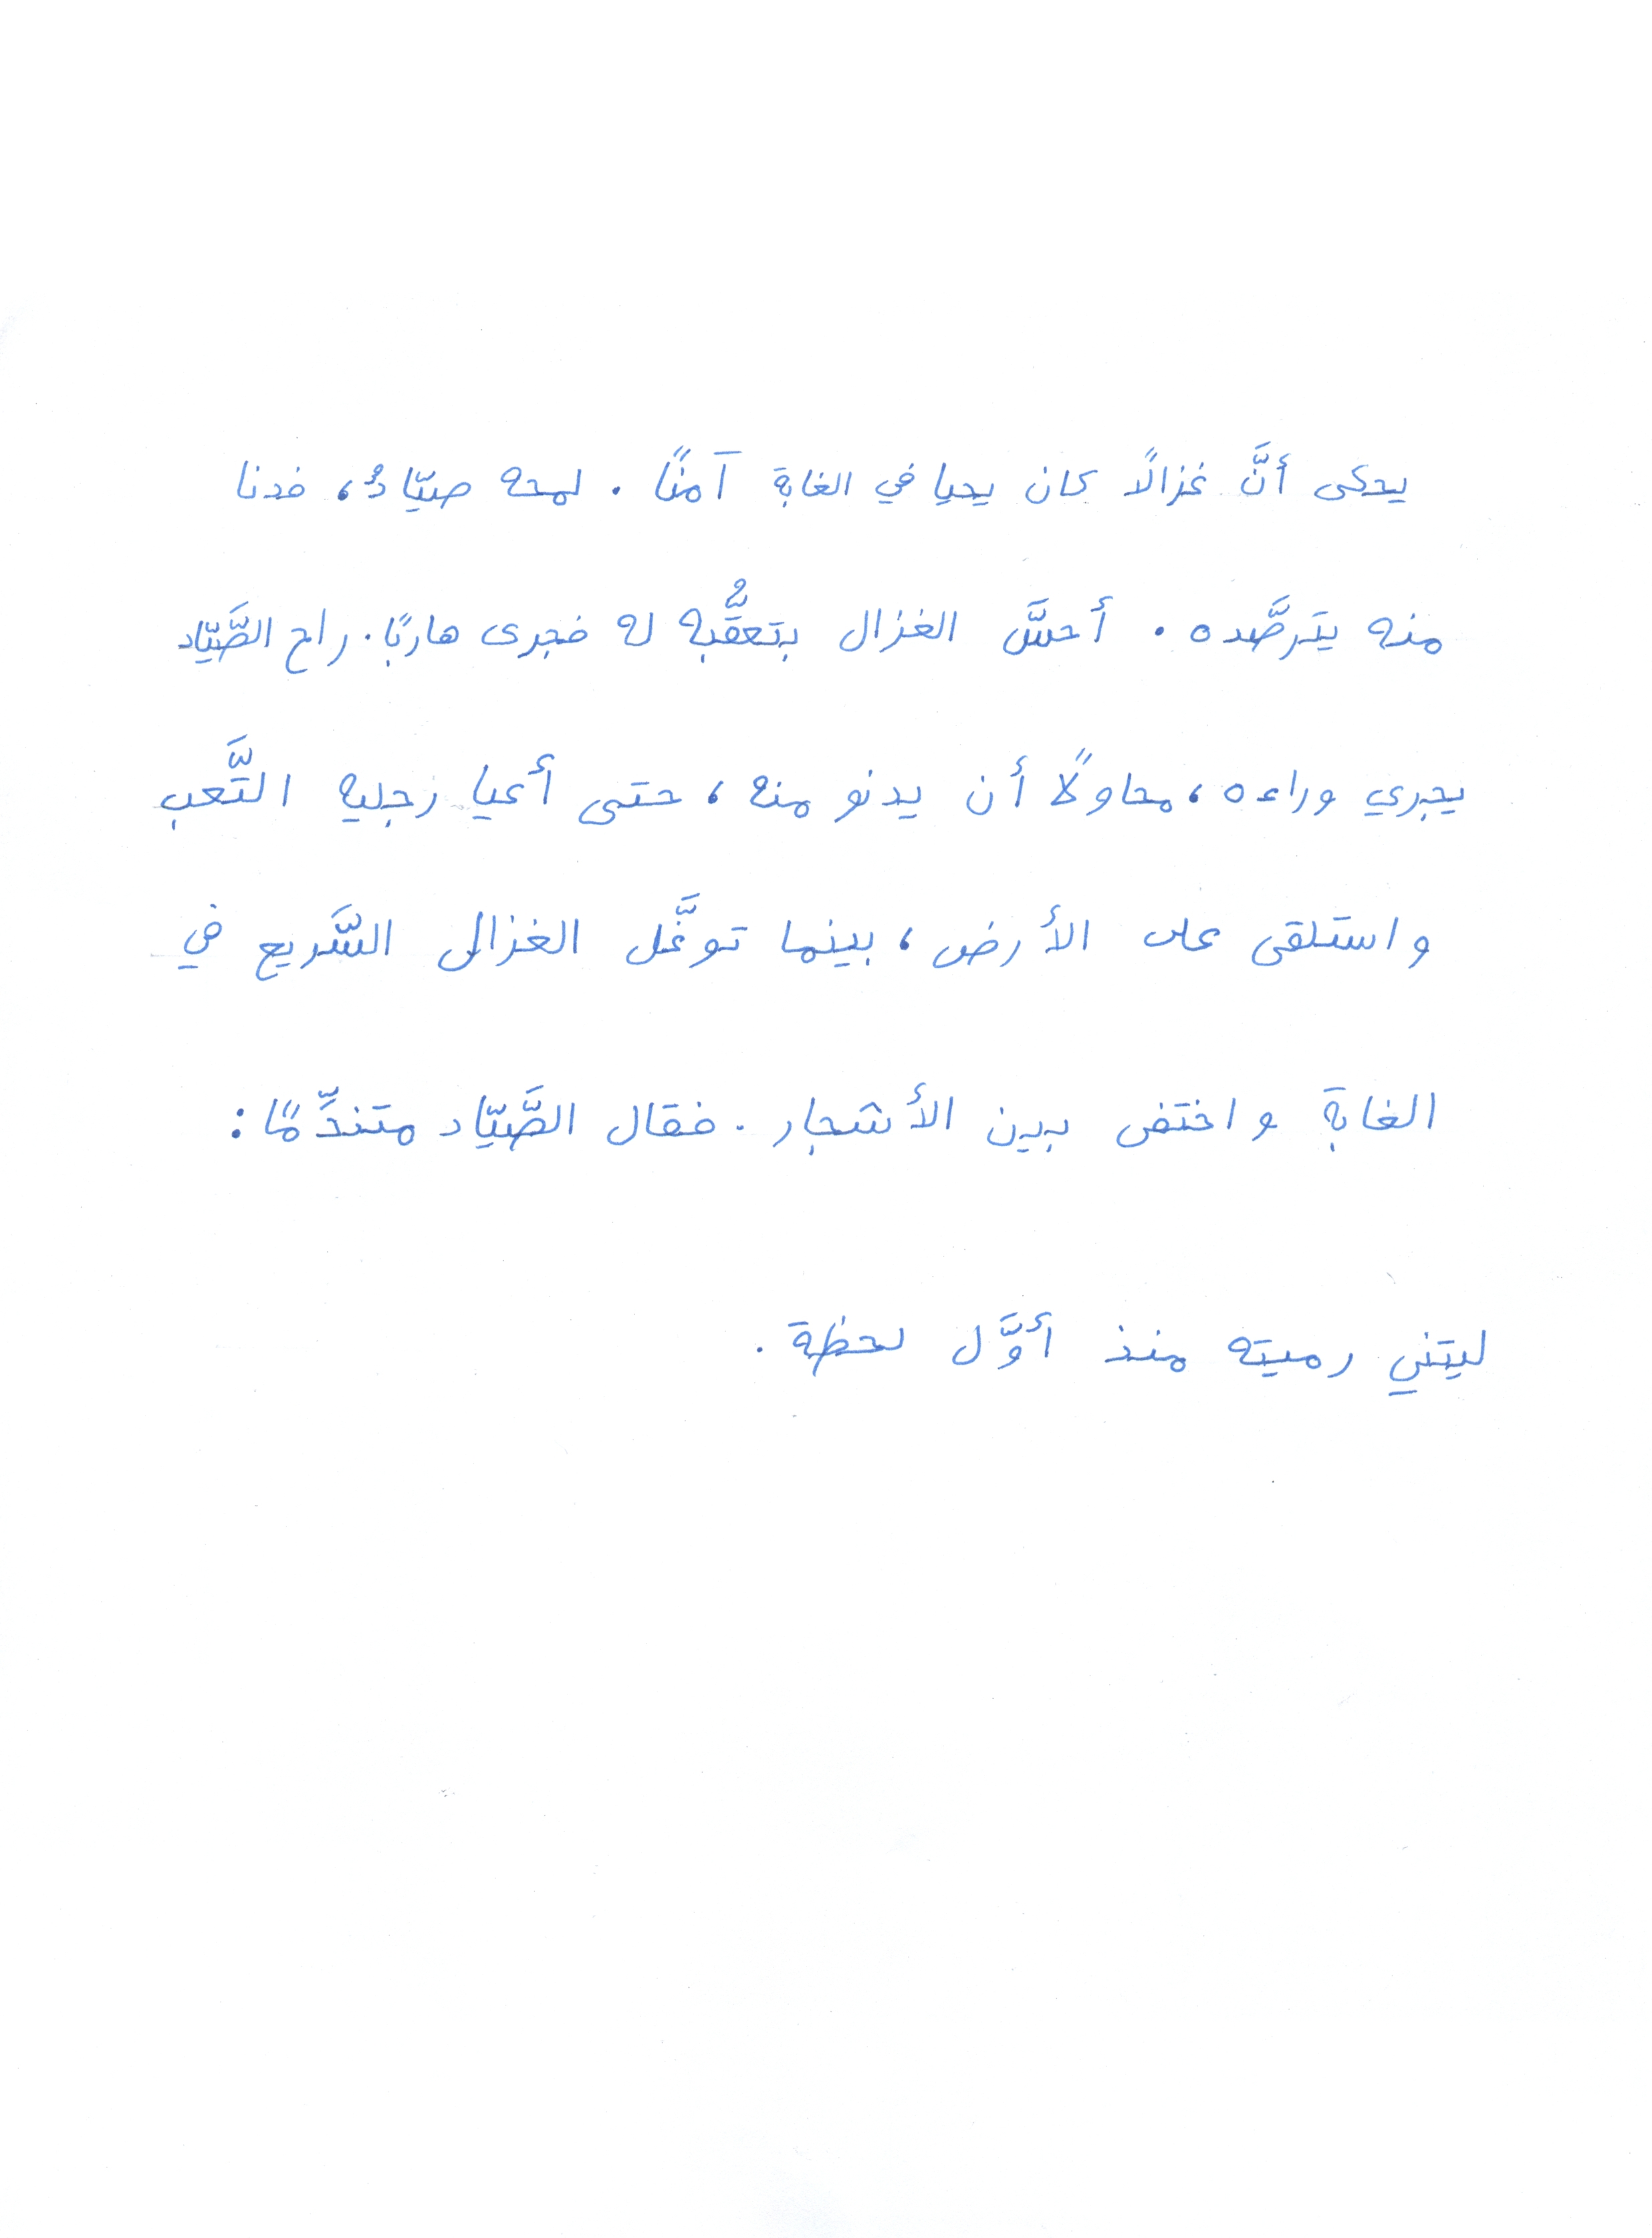 يحكى أنَّ غزالًا كان يحيا في الغابة آمنًا . لمحه صيّادٌ، فدنا
منه يترصَّده . أحسَّ الغزال بتعقُّبه له فجرى هاربًا. راح الصَّيّاد
يجري وراءه، محاولًا أن يدنو منه، حتى أعيا رجليه التَّعب
واستلقى على الأرض، بينما توغَّل الغزال السَّريع في
الغابة واختفى بين الأشجار . فقال الصَّيّاد متندِّمًا :
ليتني رميته منذ أوَّل لحظة .